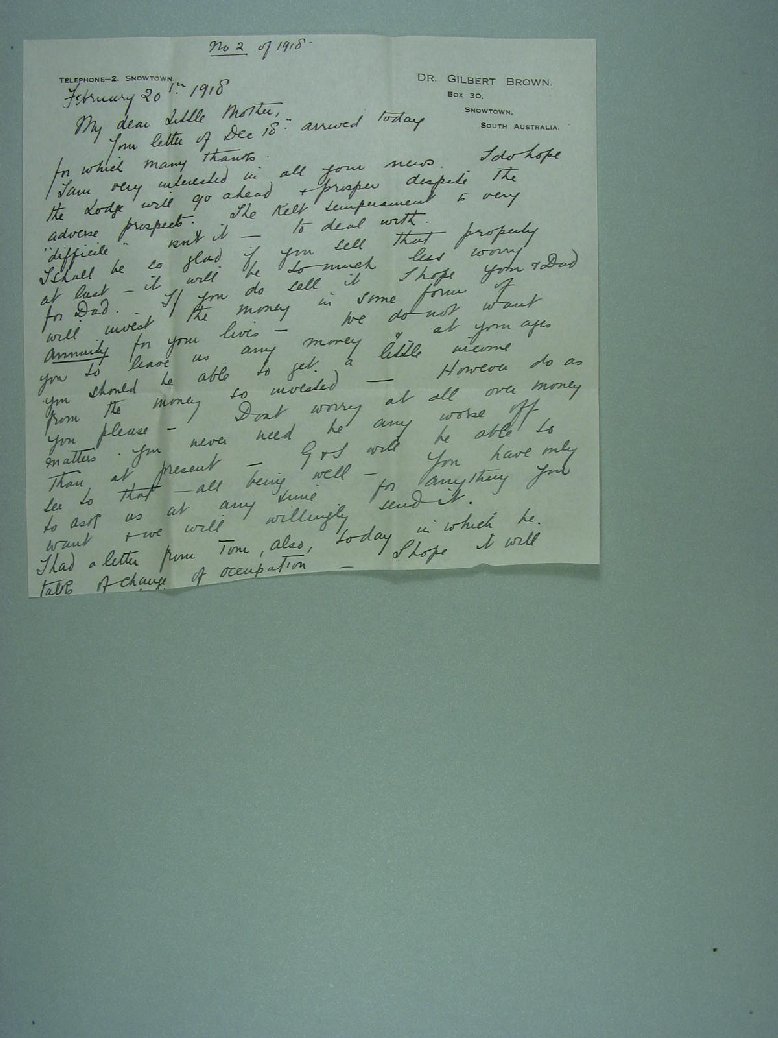 No 2 of 1918.
TELEPHONE—2. SNOWTOWN.
DR. GILBERT BROWN.
BOX 30,
SNOWTOWN,
SOUTH AUSTRALIA.
February 20th 1918
My dear Little Mother,
Your letter of Dec 18th arrived today
for which many thanks.
I am very interested in all your news. I do hope
the Lodge will go ahead & prosper despite the
adverse prospects. The Kelt temperament is very
"difficile" isn't it — to deal with.
I shall be so glad if you sell that property
at last — it will be so much less worry
for Dad. If you do sell it I hope you & Dad
will invest the money in some form of
Annuity for your lives — We do not want
you to leave us any money & at your ages
you should be able to get a little income
from the money so invested — However do as
you please — Dont worry at all over money
matters. You never need be any worse off
than at present — G & S will be able to
see to that — all being well — You have only
to ask us at any time for anything you
want & we will willingly send it.
I had a letter from Tom, also, today in which he
talks of change of occupation — I hope it will